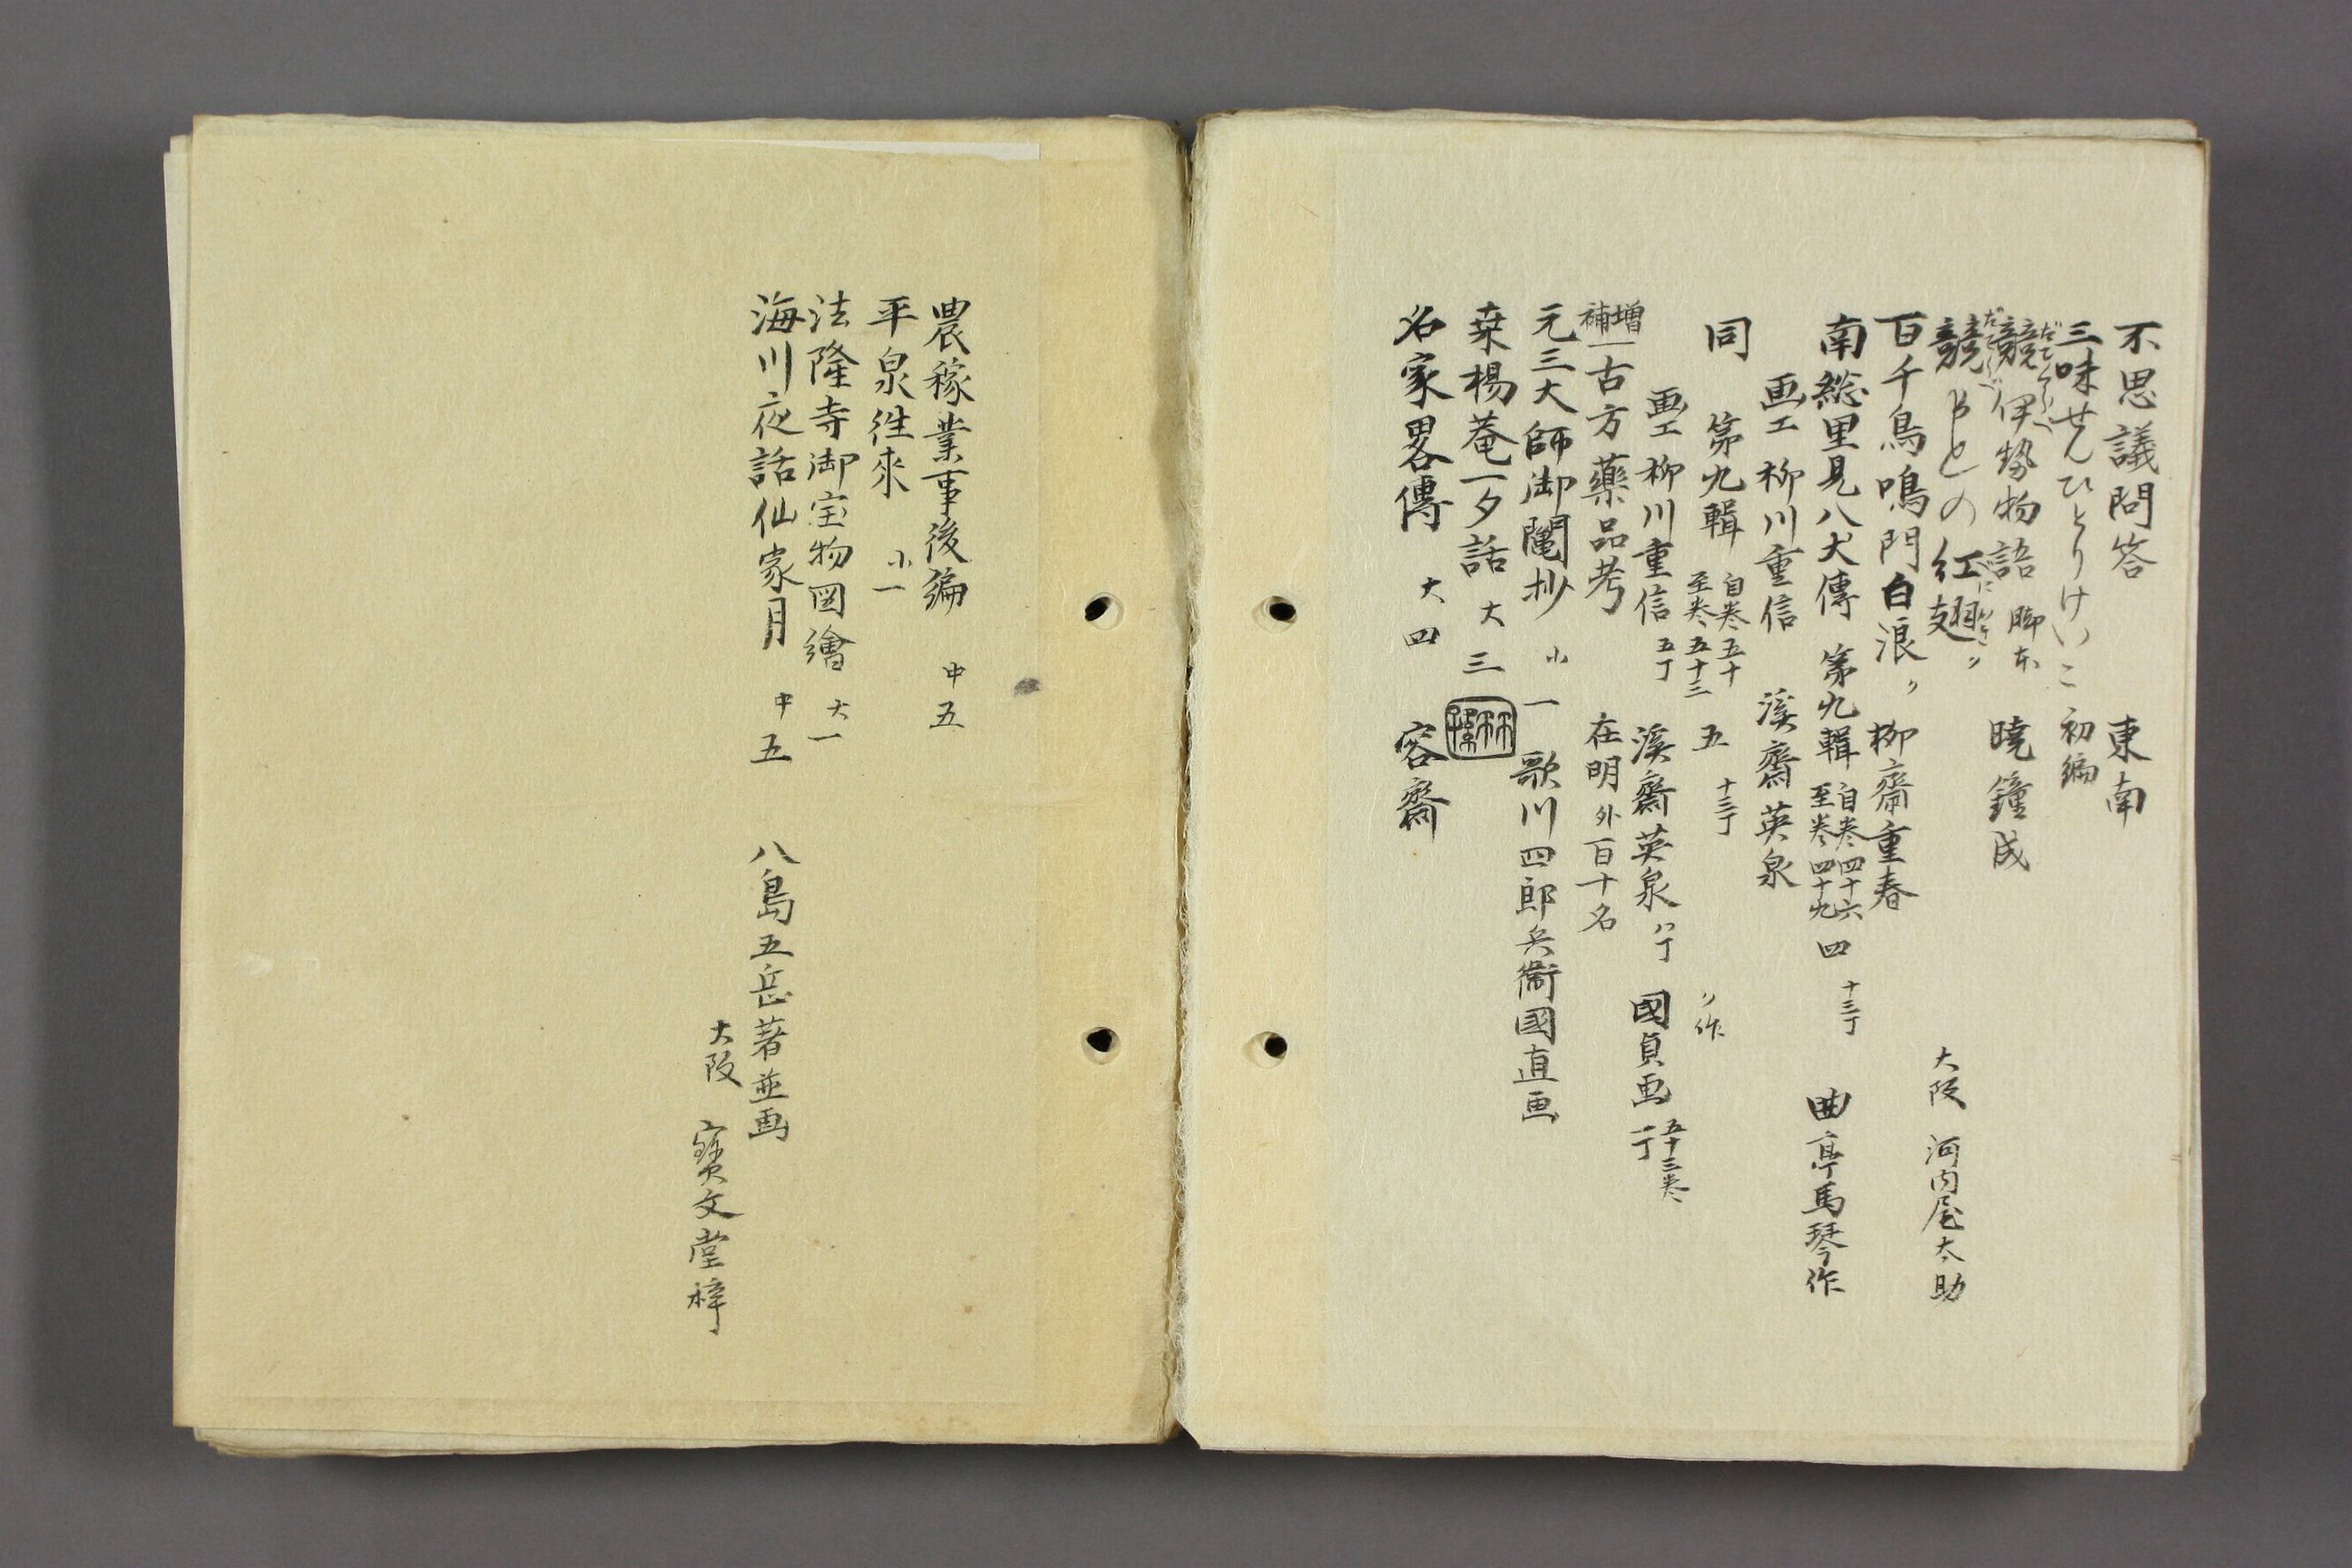 不思議問答　東南
三味せんひとりけいこ　初編
競伊勢物語　脚本　暁鐘成
競　との紅翅〃　大阪　河内屋太助
百千鳥鳴門白浪〃　柳齋重春
南総里見八犬傳　第九輯　自巻四十六　至巻四十九　四　十三丁　曲亭馬琴作
画工　柳川重信　溪齋英泉
同　第九輯　自巻五十　至巻五十三　五　十三丁　〃作
画工　柳川重信　五丁　溪齋英泉　八丁　國貞画　五十三巻　一丁
増補　一古方藥品考　在明　外百十名
元三大師御鬮抄　小一　歌川四郎兵衞國直画
桒楊菴一夕話　大三
名家畧傳　大四　容齋
農稼業事後編　中五
平泉徃來　小一
法隆寺御宝物図繪　大一
海川夜話仙家月　中五　八島五岳著並画
大阪　寳文堂梓